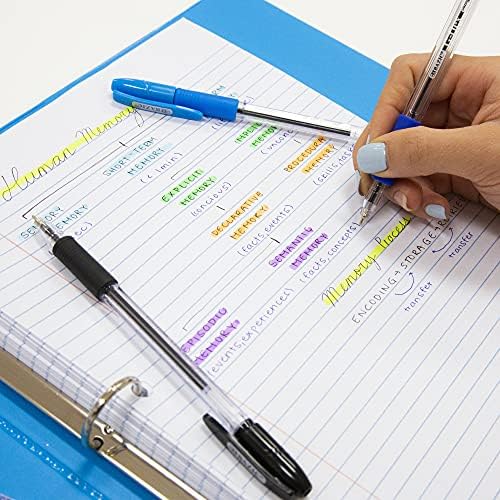 Human Memory
SENSORY
MEMORY
SHORT-TERM
MEMORY
(<1 min)
EXPLICIT
MEMORY
(conscious)
DECLARATIVE
MEMORY
(facts, events)
SEMANTIC
MEMORY
(facts, concepts)
EPISODIC
MEMORY
(events, experiences)
MEMORY
PROCEDURAL
MEMORY
(skills,
Memory Process
ENCODING → STORAGE →
transfer
transfer